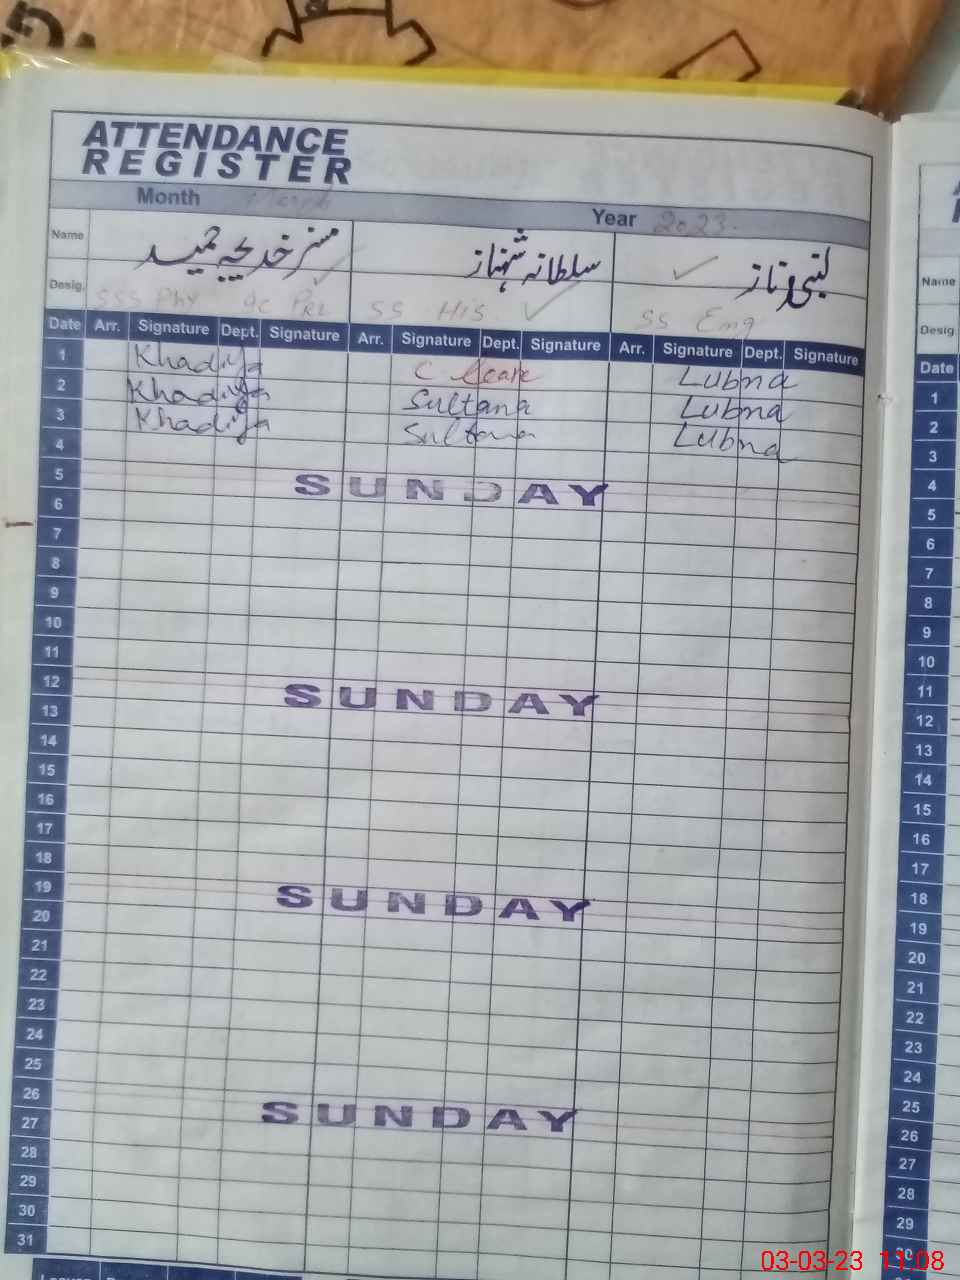 ATTENDANCE
REGISTER
Month March Year 2023
Name مسز خدیجہ حمید سلطانہ شہناز لبنیٰ ناز
Desig. SSS Phy SS HIS SS Eng
Date Arr. Signature Dept. Signature Arr. Signature Dept. Signature Arr. Signature Dept. Signature
1 Khadija C leave Lubna
2 Khadija Sultana Lubna
3 Khadija Sultana Lubna
4
5 SUNDAY
6
7
8
9
10
11
12 SUNDAY
13
14
15
16
17
18
19 SUNDAY
20
21
22
23
24
25
26 SUNDAY
27
28
29
30
31
Name
Desig
Date
1
2
3
4
5
6
7
8
9
10
11
12
13
14
15
16
17
18
19
20
21
22
23
24
25
26
27
28
29
30
03-03-23 11:08